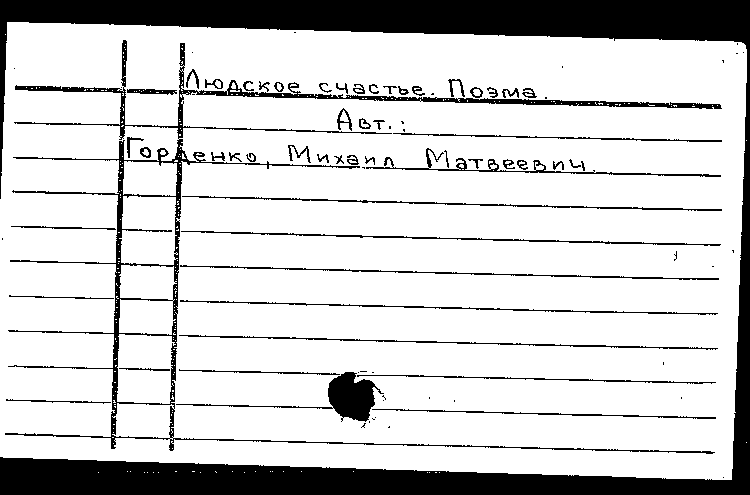 Людское счастье. Поэма.
Авт.:
Горденко, Михаил Матвеевич.